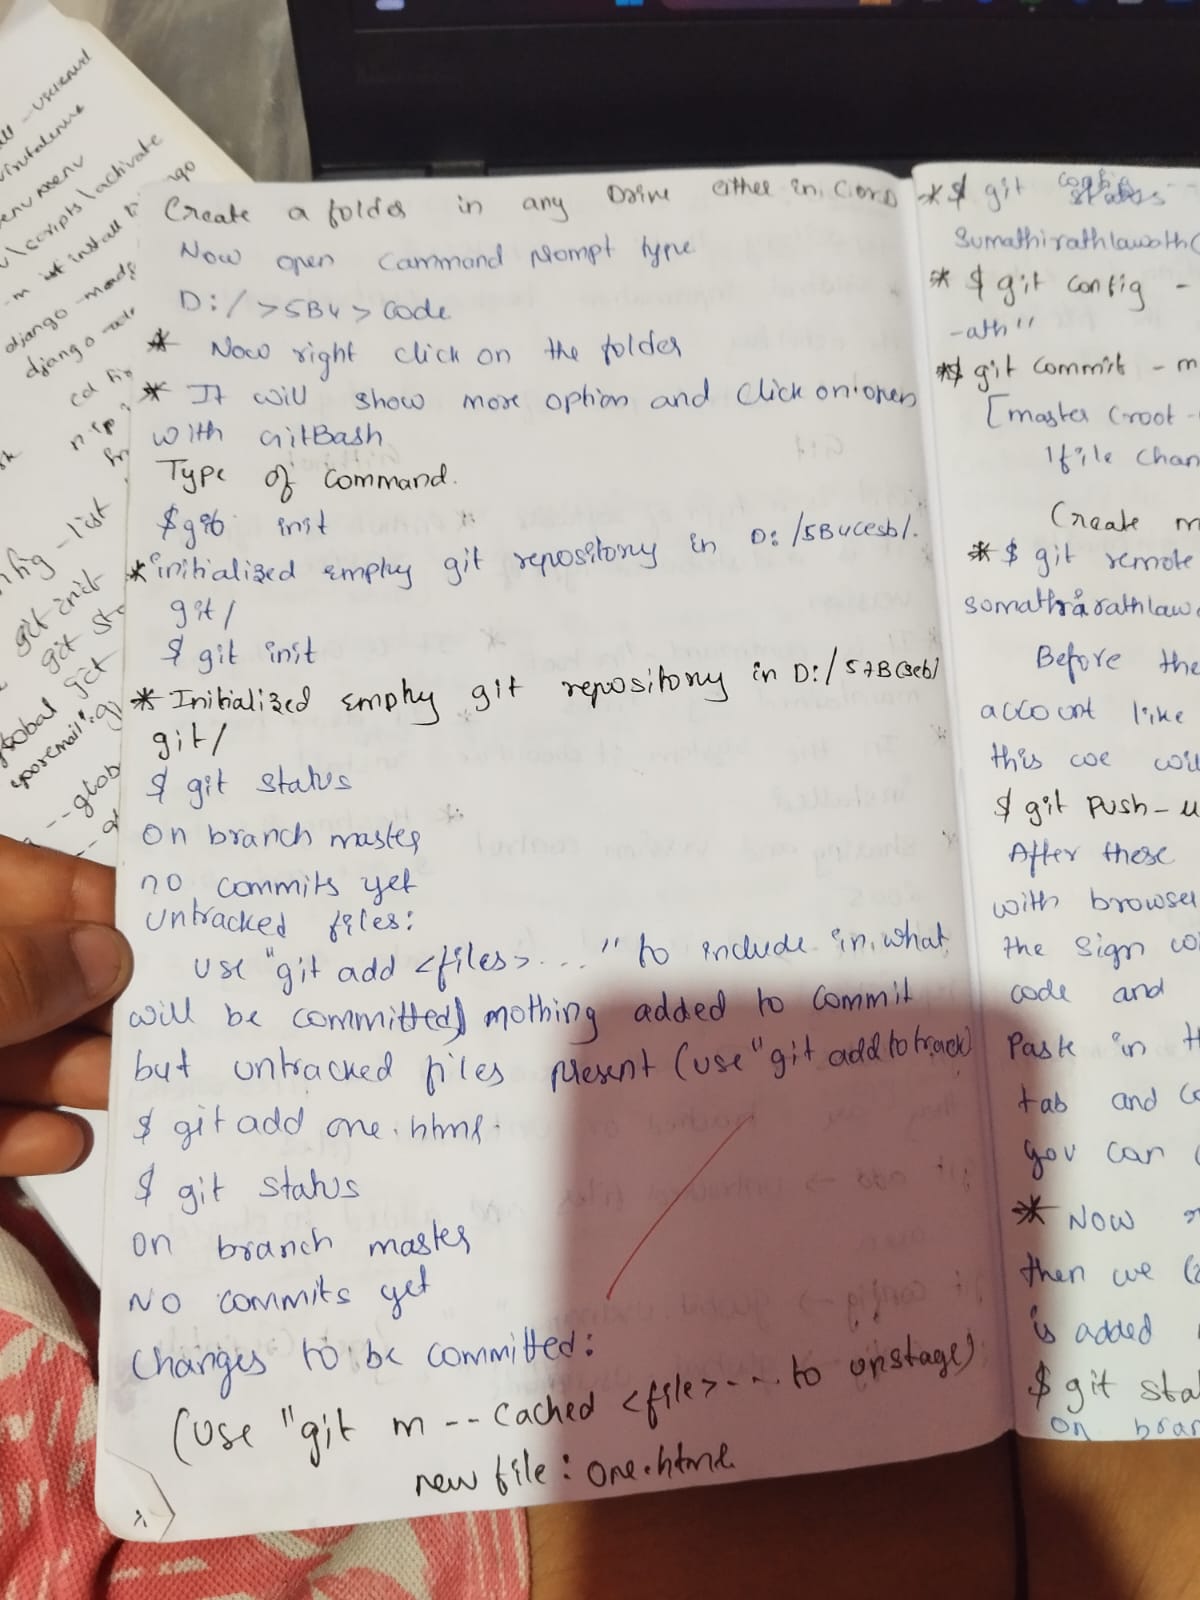 Create a folder in any Drive either in C or D
Now open cammand prompt type
D:/>5B4>code
* Now right click on the folder
* It will show more option and click on open
with GitBash
Type of command.
$ git init
* initialized empty git repository in D:/5B4cesb/.
git/
$ git init
* Initialized empty git repository in D:/
git/
$ git status
on branch master
no commits yet
untracked files:
use "git add <files>...." to include in what
will be committed) nothing added to commit
but untracked files present (use "git add to track)
$ git add one.html
$ git status
on branch master
NO commits yet
changes to be committed:
(use "git m -- cached <file>--- to unstage)
new file: one.html
* $ git
* $ git config -
-ath"
*$ git commit - m
[master (root -
1 file chan
Create m
* $ git remote
Before the
account like
this we
$ git push - u
After these
with browser
the sign
code and
Paste in
tab and
you can
* Now
then we
is added
$ git sta
on bran
scripts\activate
install
django
django
git init
git
git
-- glob